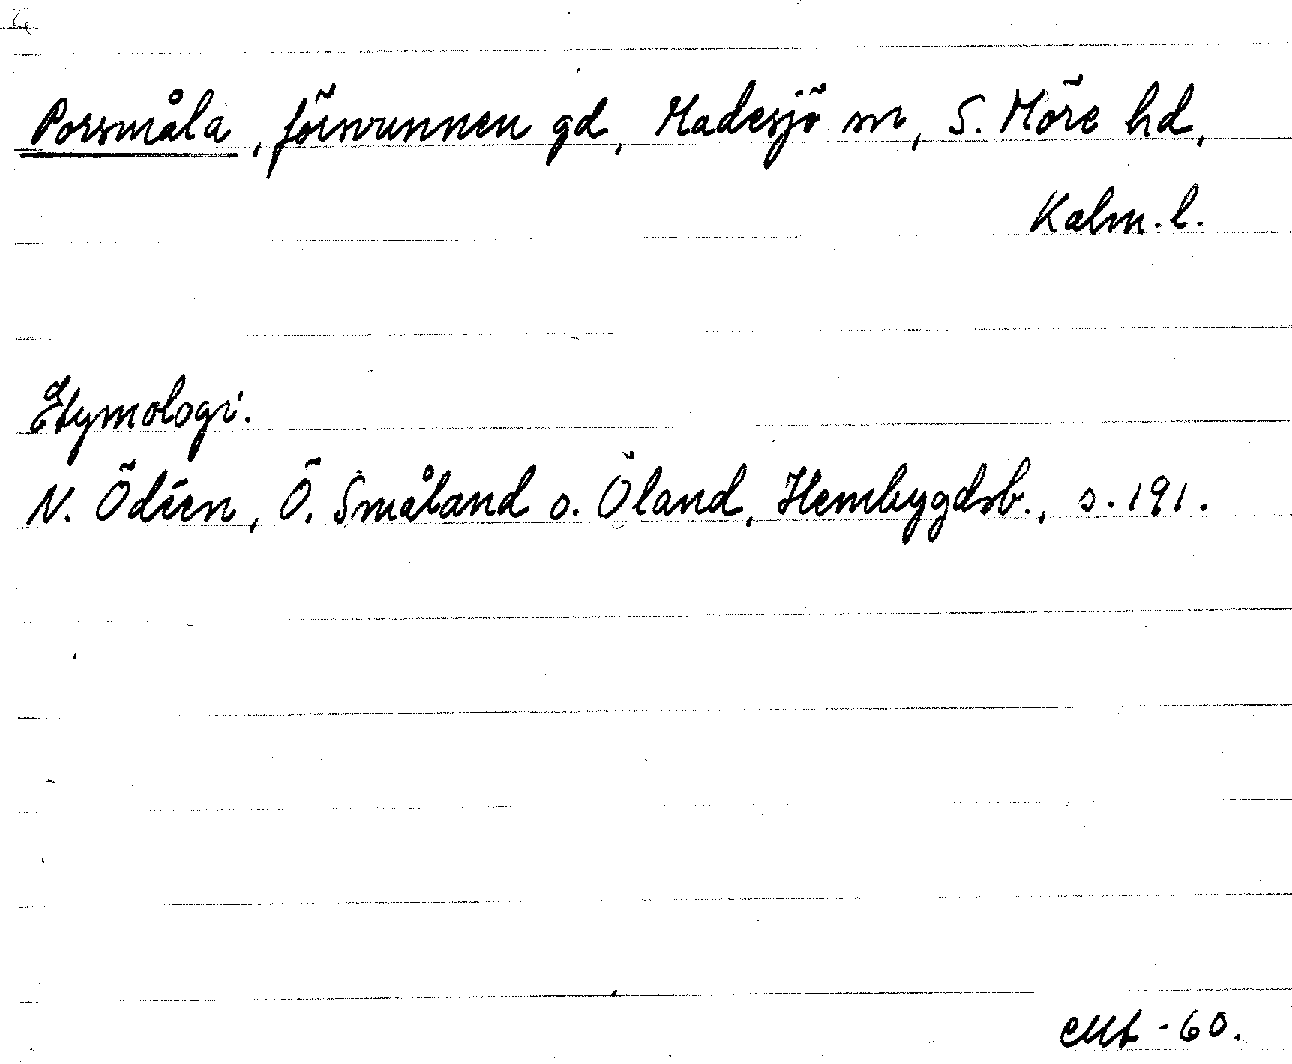 Porsmåla, försvunnen gd, Madesjö sn, S. Möre hd,
Kalm. l.
Etymologi.
N. Ödéen, Ö. Småland o. Öland, Hembygdsb., s. 191.
-60.